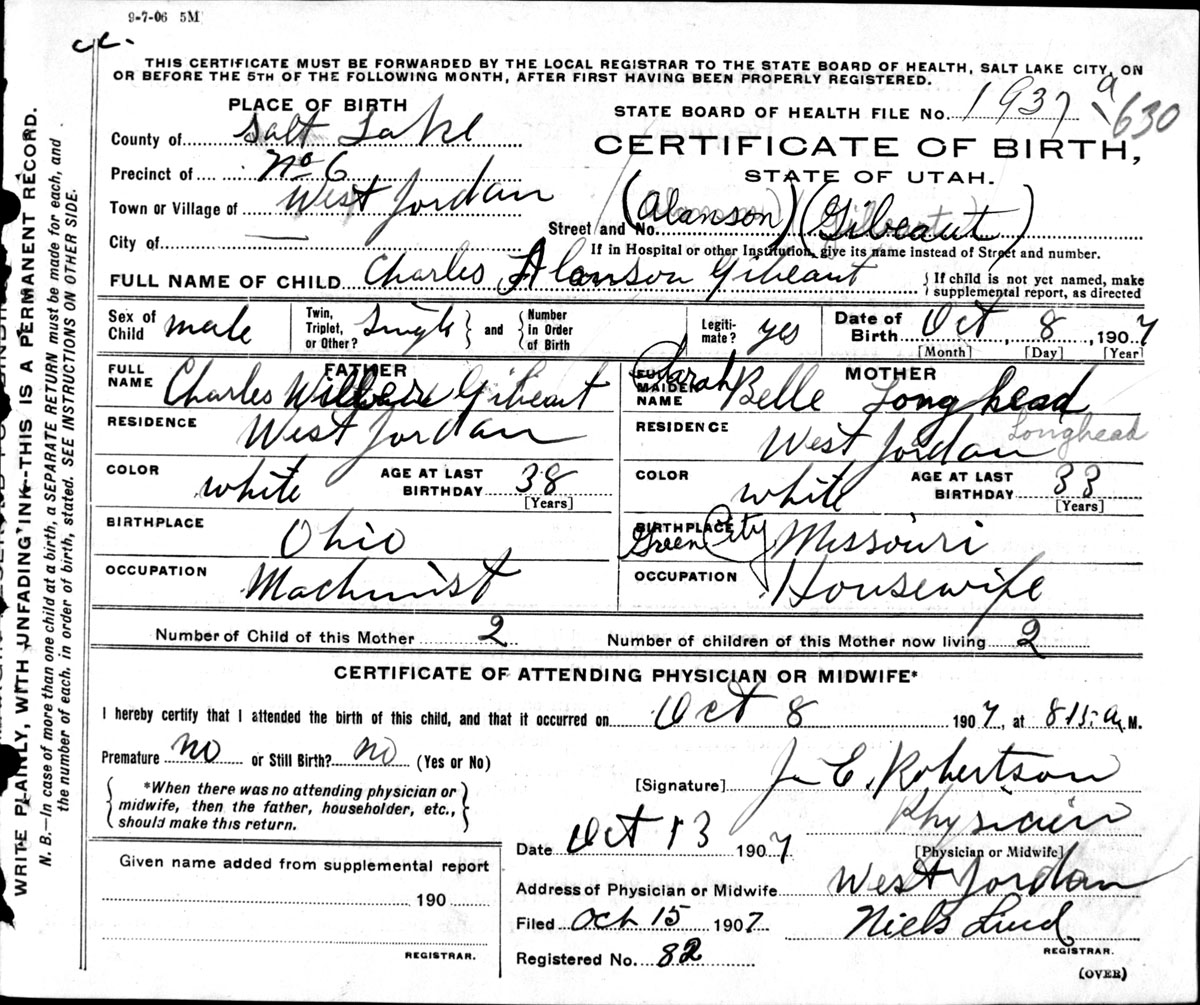 9-7-06 5M
THIS CERTIFICATE MUST BE FORWARDED BY THE LOCAL REGISTRAR TO THE STATE BOARD OF HEALTH, SALT LAKE CITY, ON
OR BEFORE THE 5TH OF THE FOLLOWING MONTH, AFTER FIRST HAVING BEEN PROPERLY REGISTERED.
PLACE OF BIRTH
STATE BOARD OF HEALTH FILE No. 1937 a 630
County of Salt Lake
CERTIFICATE OF BIRTH,
STATE OF UTAH.
Precinct of No 6
Town or Village of West Jordan
Street and No. (Alanson) (Gibeaut)
City of
If in Hospital or other Institution, give its name instead of Street and number.
FULL NAME OF CHILD Charles Alanson Gibeaut
{If child is not yet named, make
supplemental report, as directed
Sex of Child male
Twin, Triplet, or Other? Single } and { Number in Order of Birth
Legiti-mate? yes
Date of Birth Oct 8, 1907
[Month] [Day] [Year]
FATHER
FULL NAME Charles Wilber Gibeaut
RESIDENCE West Jordan
COLOR white
AGE AT LAST BIRTHDAY 38
[Years]
BIRTHPLACE Ohio
OCCUPATION Machinist
MOTHER
FULL MAIDEN NAME Sarah Belle Longhead
Longhead
RESIDENCE West Jordan
COLOR white
AGE AT LAST BIRTHDAY 33
[Years]
BIRTHPLACE Green City Missouri
OCCUPATION Housewife
Number of Child of this Mother 2
Number of children of this Mother now living 2
CERTIFICATE OF ATTENDING PHYSICIAN OR MIDWIFE*
I hereby certify that I attended the birth of this child, and that it occurred on Oct 8 1907, at 815 a M.
Premature no or Still Birth? no (Yes or No)
*When there was no attending physician or
midwife, then the father, householder, etc.,
should make this return.
[Signature] J E. Robertson
Physician
[Physician or Midwife]
Date Oct 13 1907
Address of Physician or Midwife West Jordan
Filed Oct 15 1907
Niels Lind
REGISTRAR.
Registered No. 82
(OVER)
Given name added from supplemental report
190
REGISTRAR.
WRITE PLAINLY, WITH UNFADING INK--THIS IS A PERMANENT RECORD.
N. B.—In case of more than one child at a birth, a SEPARATE RETURN must be made for each, and
the number of each, in order of birth, stated. SEE INSTRUCTIONS ON OTHER SIDE.